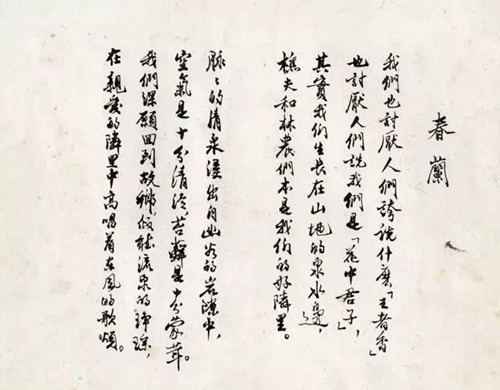 春蘭
我們也討厭人們誇說什麼「王者香」
也討厭人們說我們是「花中君子」，
其實我們生長在山地的泉水邊，
樵夫和林農們本是我們的好隣里。
脉々的清泉浸出自幽谷的岩隙中，
空氣是十分清冷，苔蘚是十分蒙茸。
我們深願回到故鄉，伴能流泉的琤琮，
在親愛的隣里中高唱着東風的歌頌。